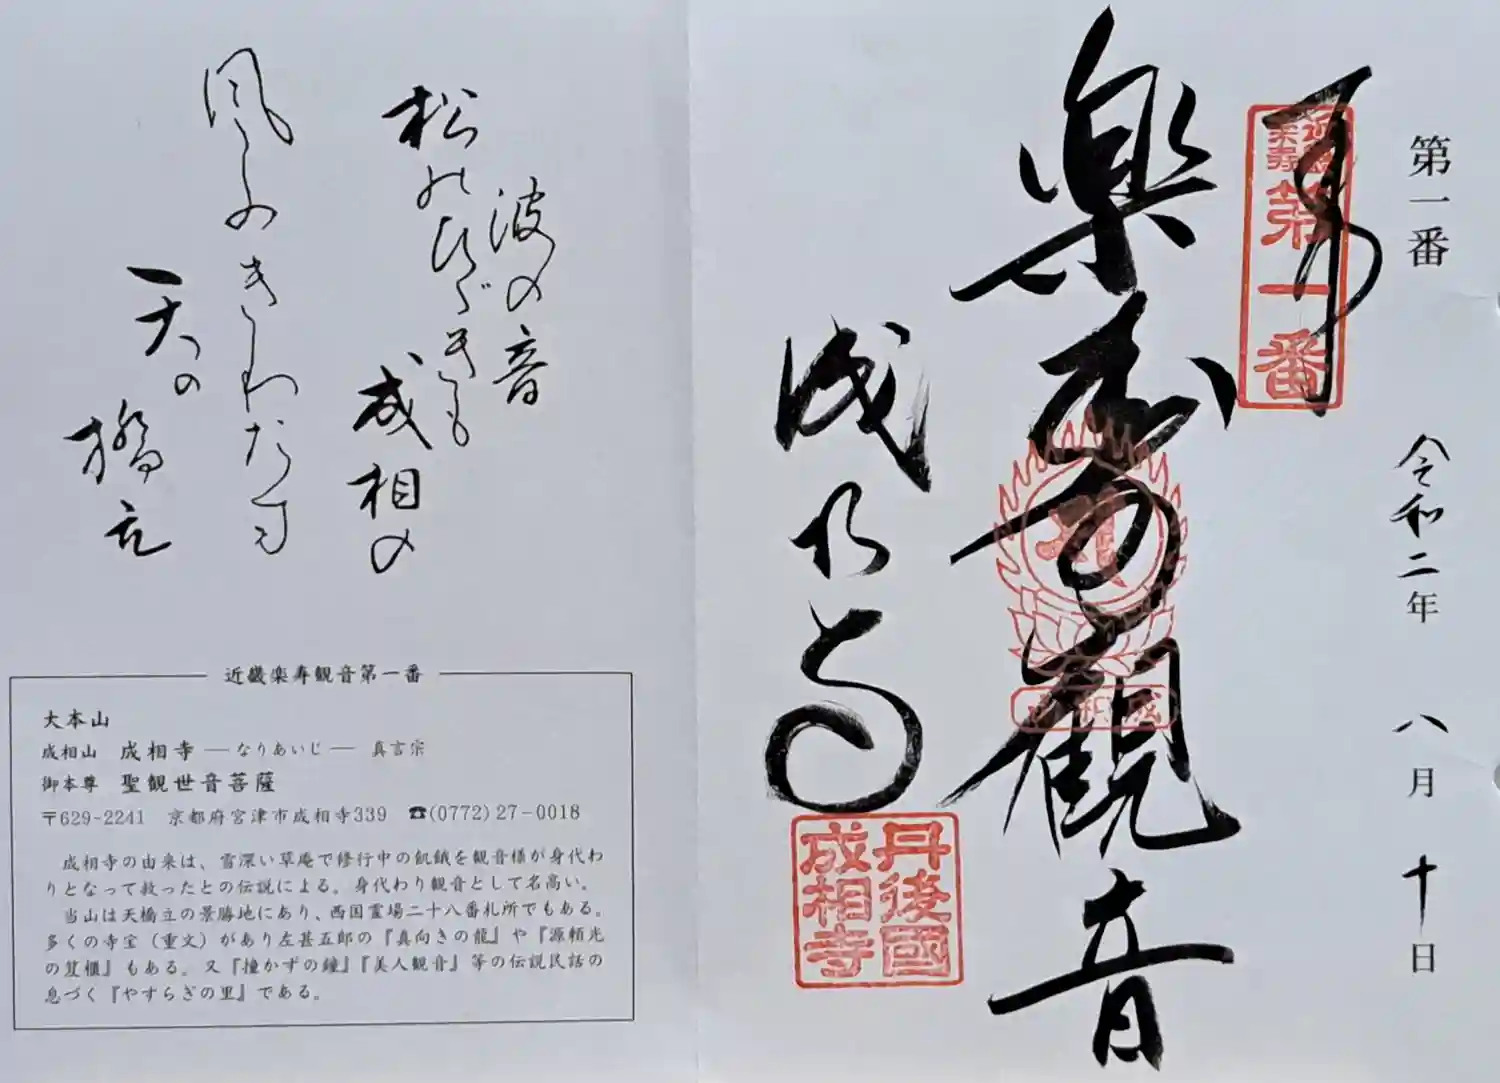 第一番
令和二年
八月
十日
奉
近畿
楽寿
第一番
楽寿観音
成相
成相寺
丹後國
成相寺
波の音
松のひゞきも
成相の
風ふきわたす
天の
橋立
近畿楽寿観音第一番
大本山
成相山 成相寺 ―なりあいじ― 真言宗
御本尊 聖観世音菩薩
〒629-2241 京都府宮津市成相寺339 ☎(0772)27-0018
成相寺の由来は、雪深い草庵で修行中の飢餓を観音様が身代わ
りとなって救ったとの伝説による。身代わり観音として名高い。
当山は天橋立の景勝地にあり、西国霊場二十八番札所でもある。
多くの寺宝（重文）があり左甚五郎の『真向きの龍』や『源頼光
の笈櫃』もある。又『撞かずの鐘』『美人観音』等の伝説民話の
息づく『やすらぎの里』である。